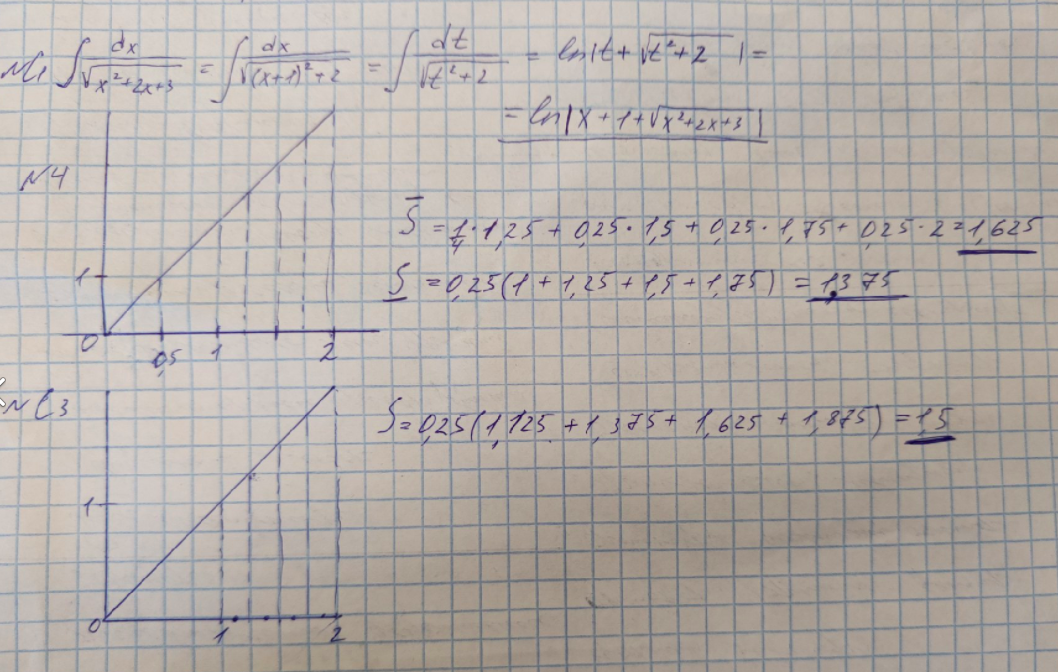 №1 ∫ dx/√(x²+2x+3) = ∫ dx/√((x+1)²+2) = ∫ dt/√(t²+2) = ln|t+√(t²+2)| =
= ln|x+1+√(x²+2x+3)|
№4
S̅ = 1/4·1,25 + 0,25·1,5 + 0,25·1,75 + 0,25·2 = 1,625
1
S̲ = 0,25(1+1,25+1,5+1,75) = 1,375
0 0,5 1 2
3
S = 0,25(1,125 + 1,375 + 1,625 + 1,875) = 1,5
1
0 1 2